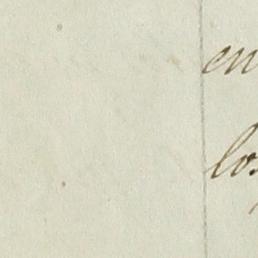 en
los